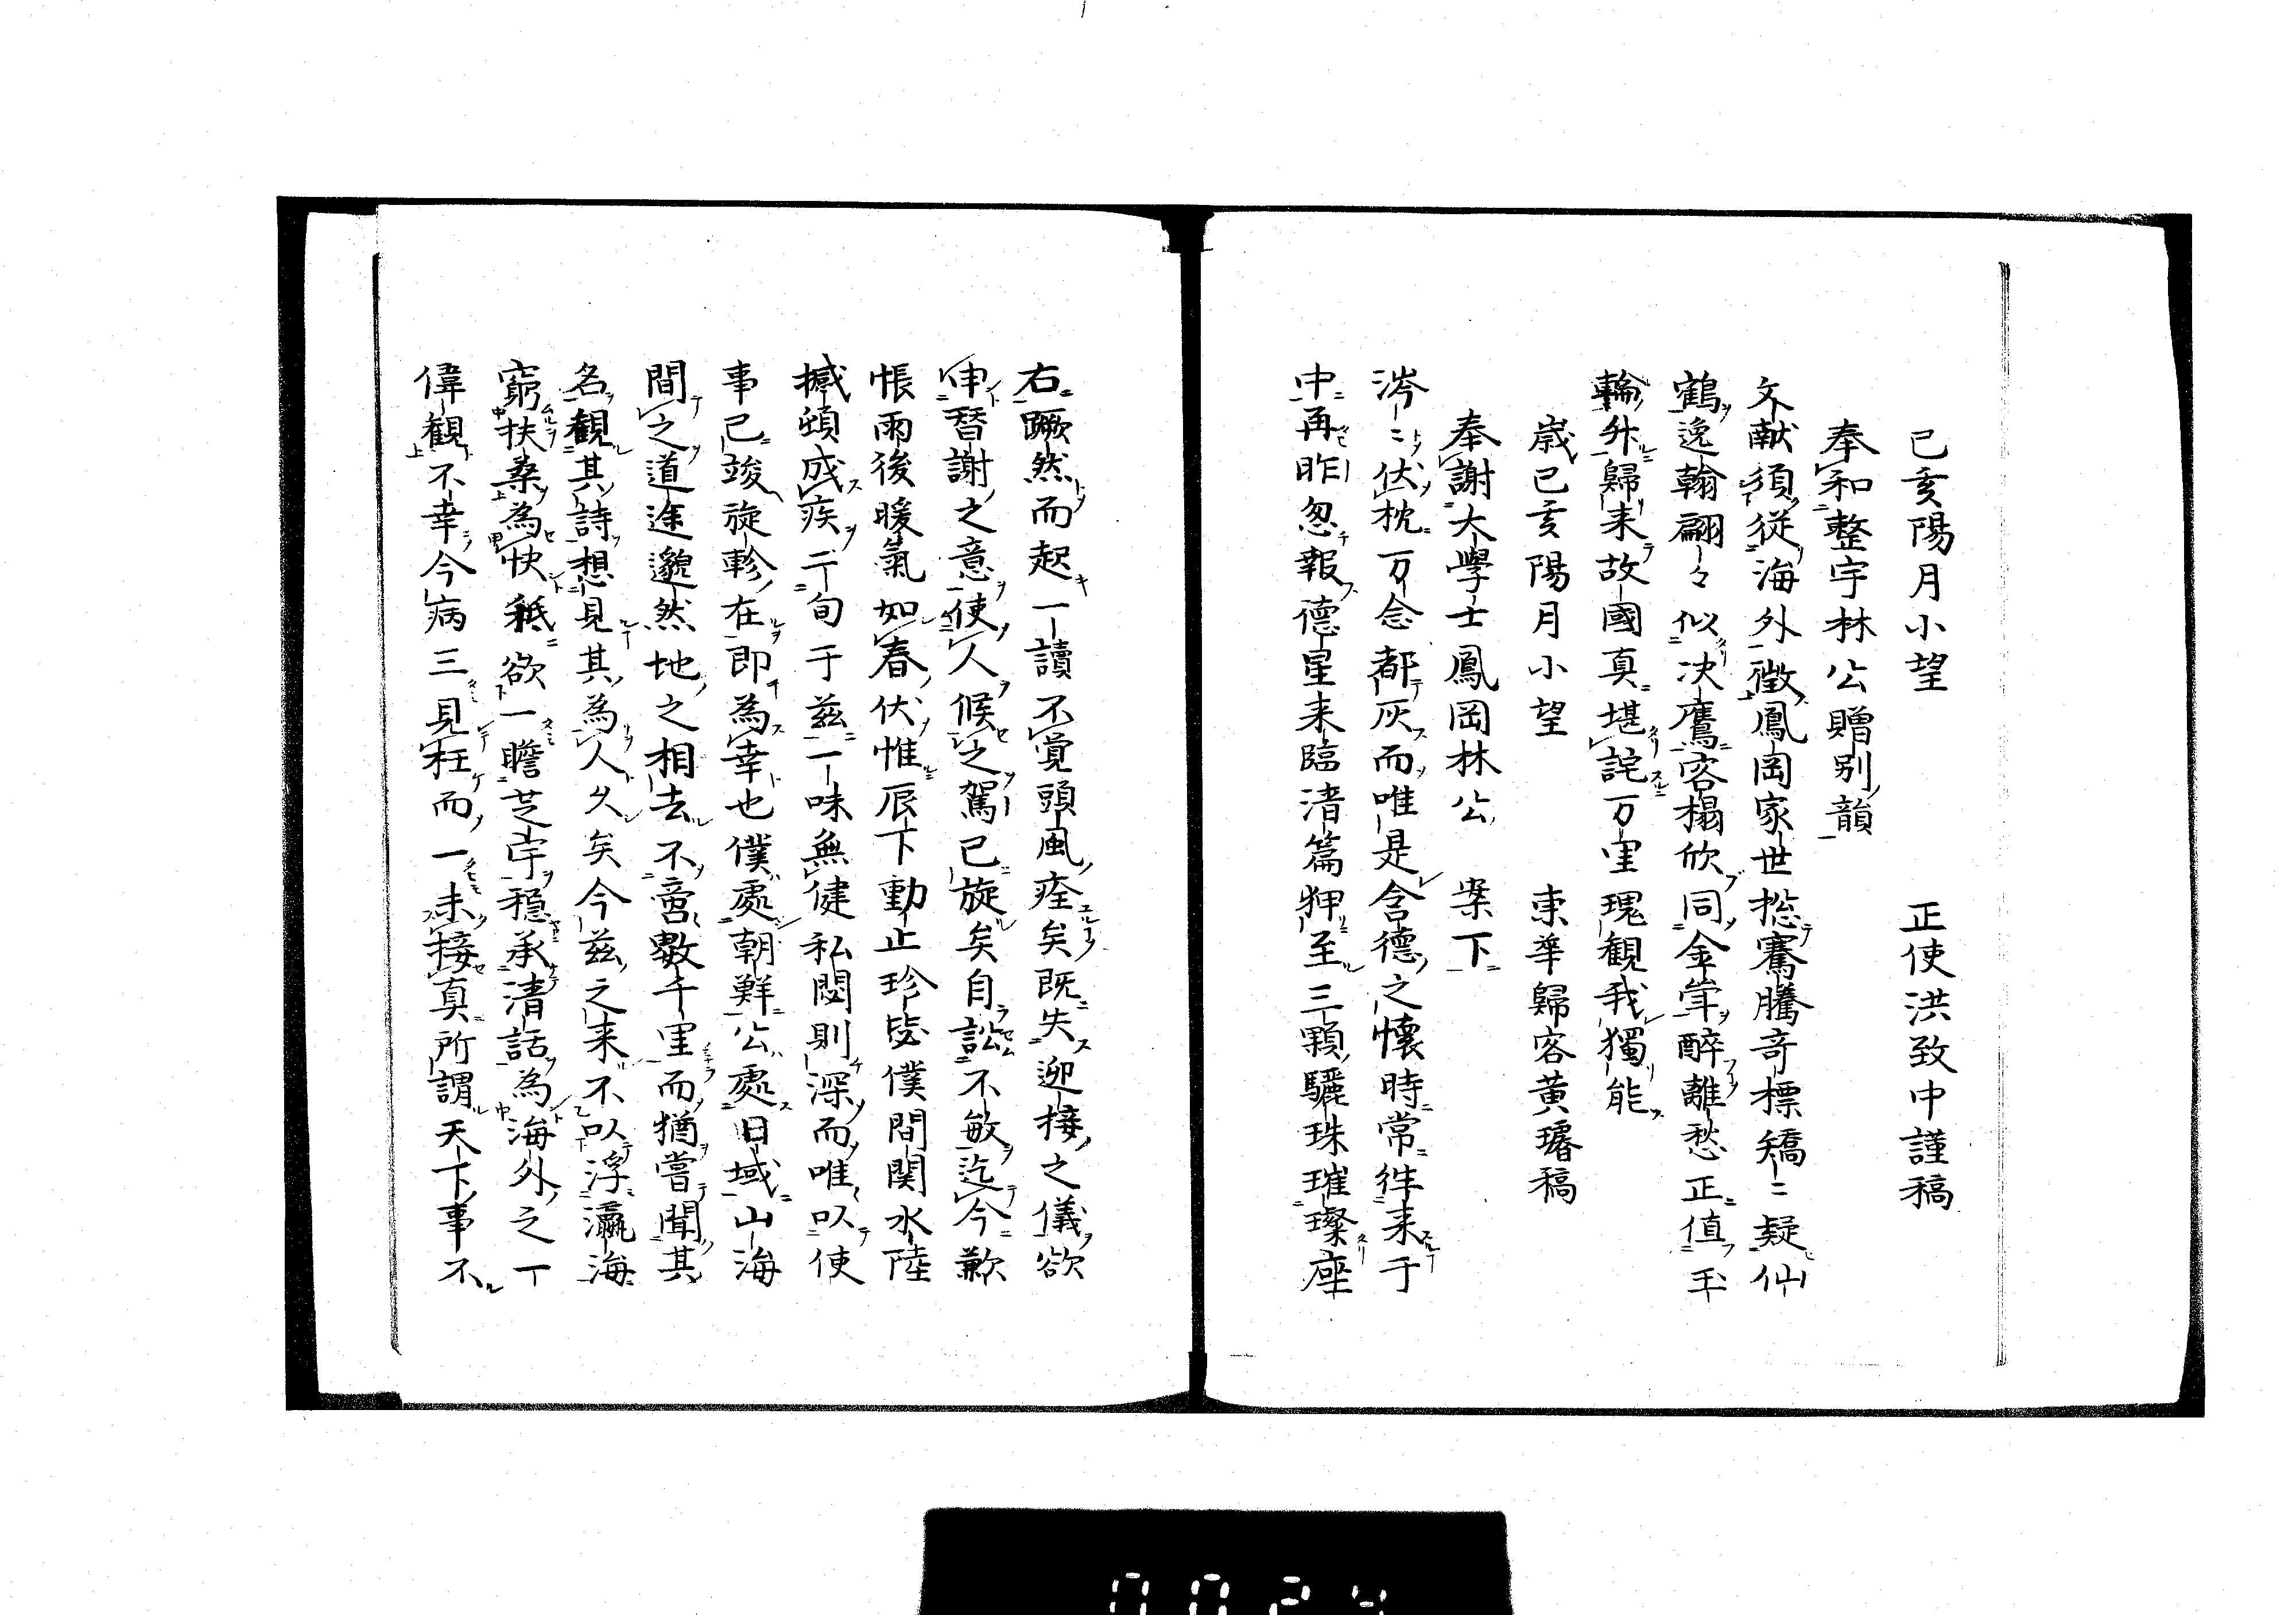 己亥陽月小望　正使洪致中謹稿
奉和整宇林公贈別韻
文献須従海外徴鳳岡家世揔騫騰奇標矯〻疑仙
鶴逸翰翩々似决鷹客榻欣同金峯醉離愁正値玉
輪升歸来故國真堪詫万里瑰觀我獨能
歳己亥陽月小望　東華歸客黄璿稿
奉謝大學士鳳岡林公　案下
涔〻伏枕万念都灰而唯是含德之懷時常徃来于
中再昨忽報德星来臨渚篇狎至三顆驪珠璀璨座
右蹶然而起一讀不覚頭風痊矣既失迎接之儀欲
申暦謝之意使人候之駕已旋矣自訟不敏迄今歉
悵雨後暖氣如春伏惟辰下動止珍毖僕間関水陸
撼頓成疾二旬于茲一味無健私悶則深而唯以使
事已竣旋軫在即為幸也僕處朝鮮公處日域山海
間之道途邈然地之相去不啻數千里而猶嘗聞其
名觀其詩想見其為人久矣今茲之来不以浮瀛海
窮扶桑為快秪欲一瞻芝宇穏承清話為海外之一
偉觀不幸今病三見枉而一未接真所謂天下事不
0024